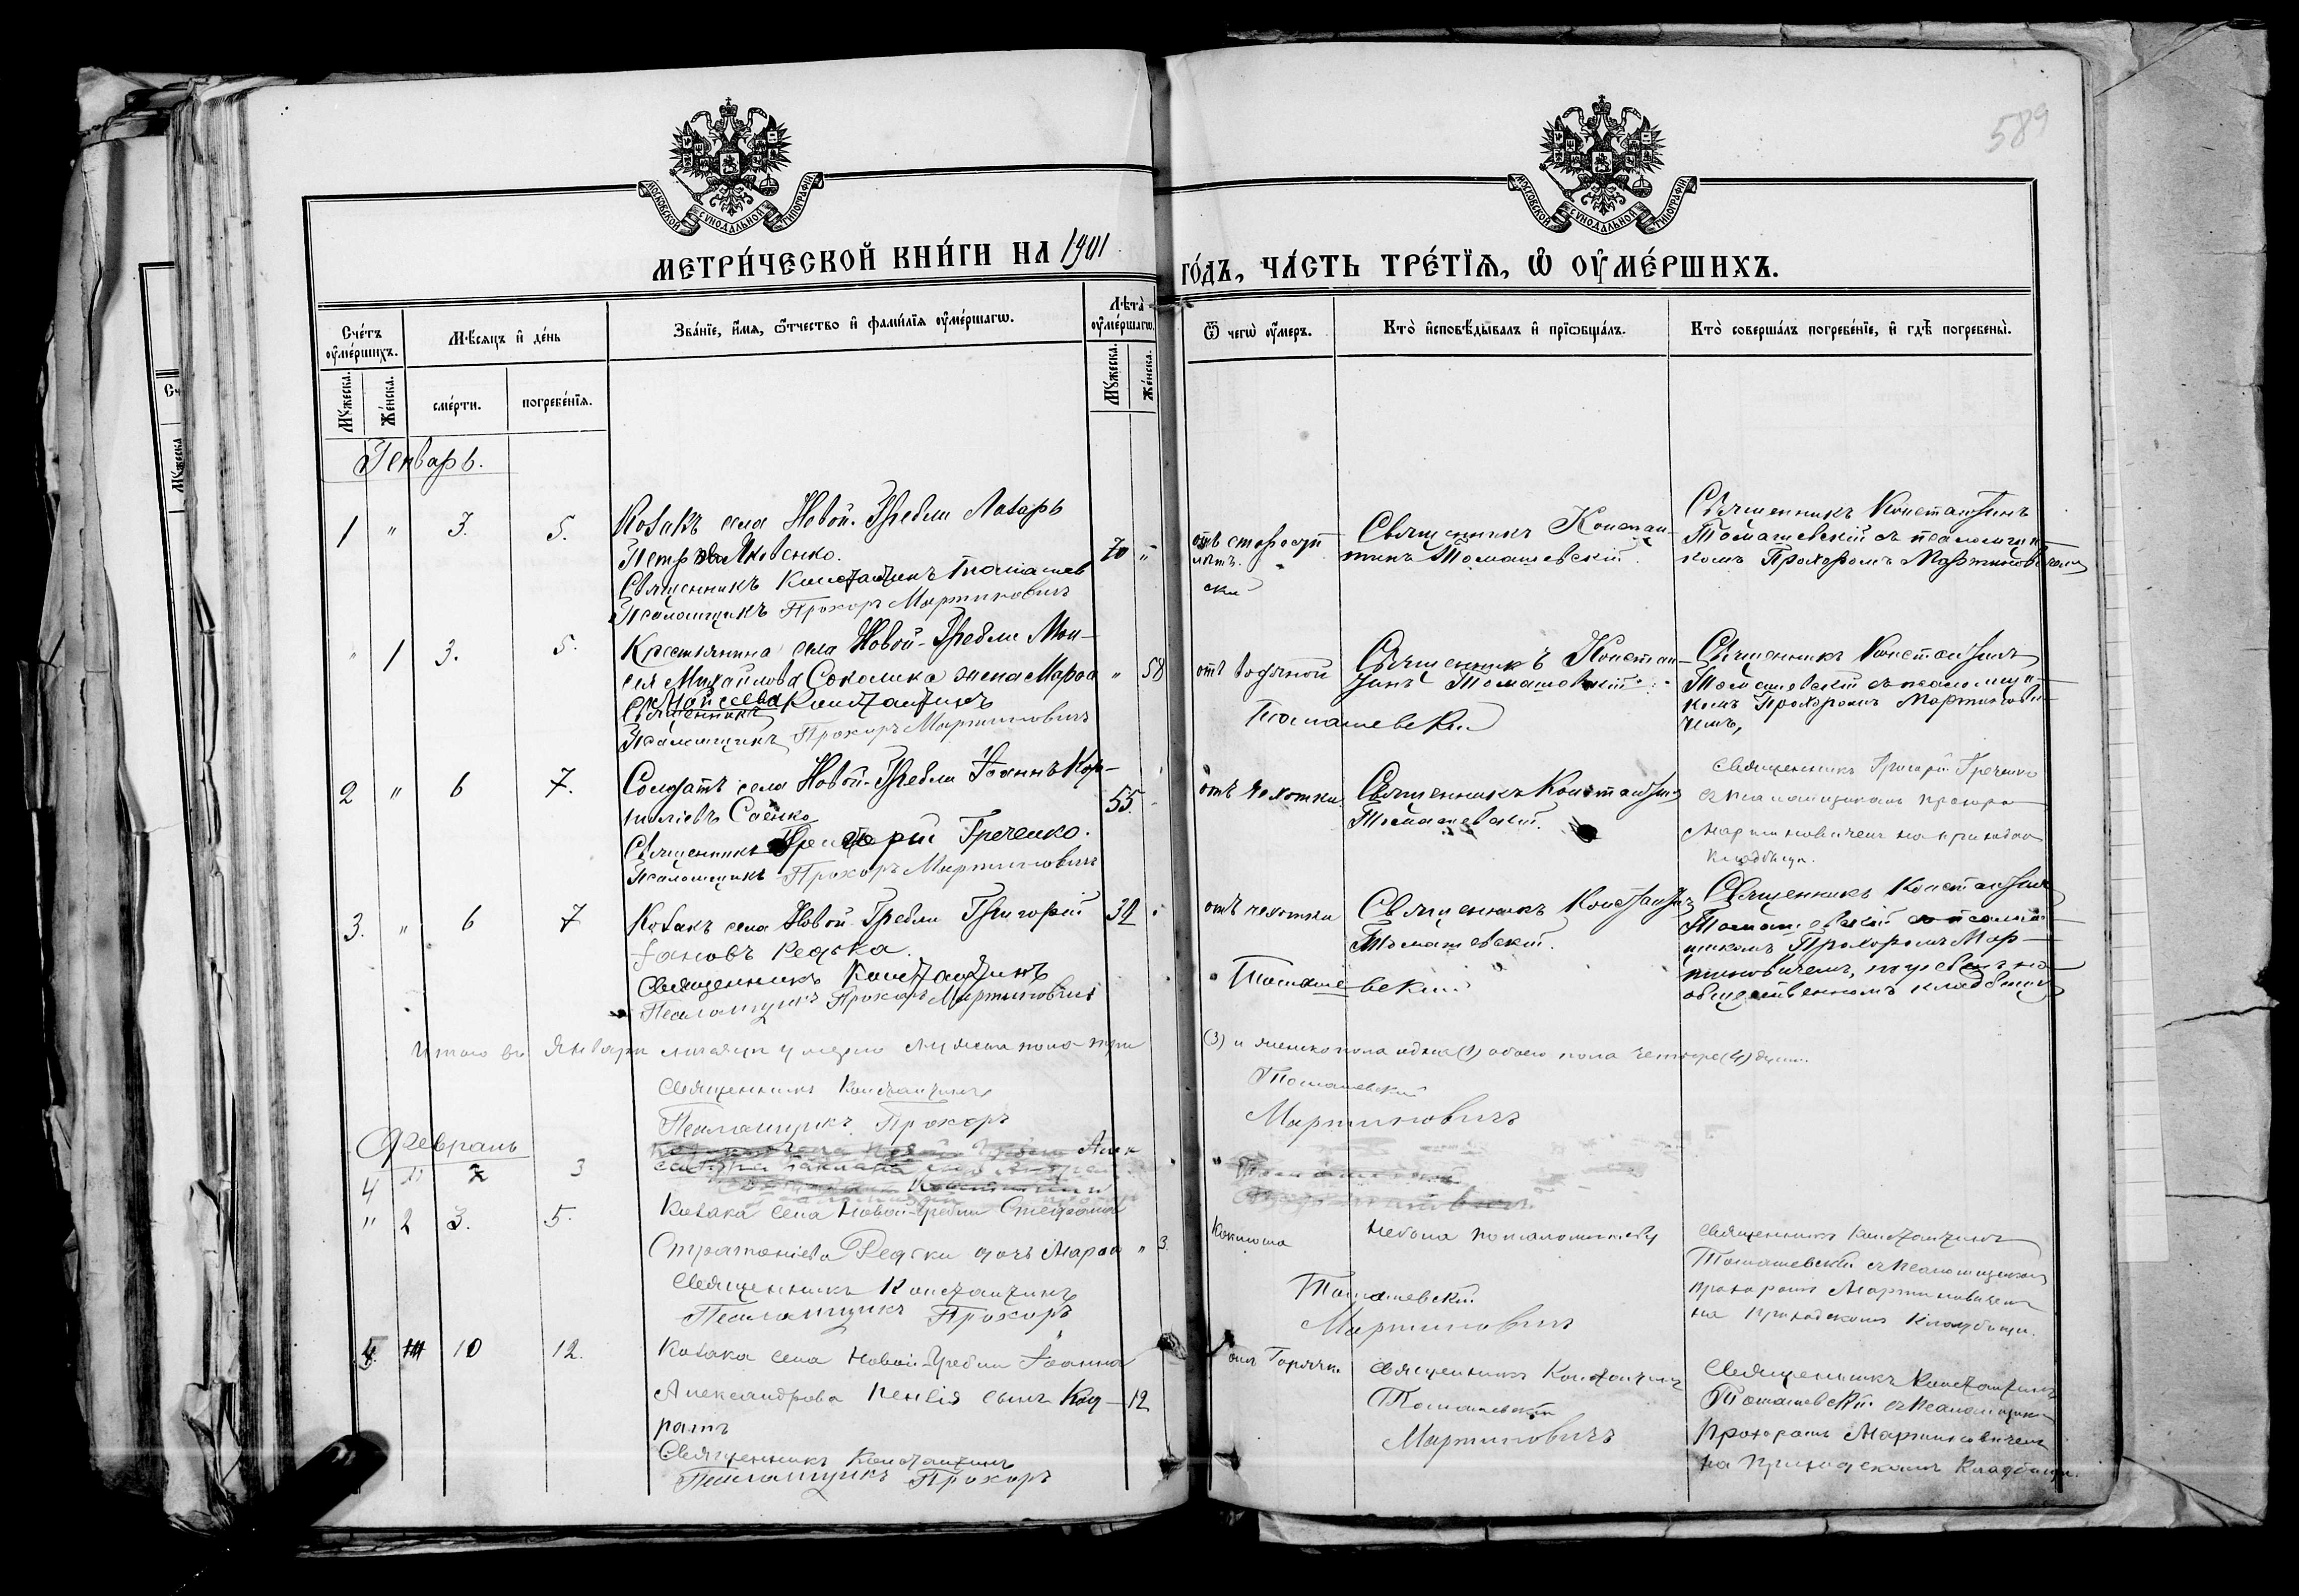 589
МОСКОВСКОЙ СѴНОДАЛЬНОЙ ТИПОГРАФІИ
МОСКОВСКОЙ СѴНОДАЛЬНОЙ ТИПОГРАФІИ
МЕТРИ́ЧЕСКОЙ КНИ́ГИ НА 1901 ГО́ДЪ, ЧА́СТЬ ТРЕ́ТІѦ, Ѡ ОУ҆МЕ́РШИХЪ.
Сче́тъ оу҆ме́ршихъ.
Мꙋ́жеска.
Же́нска.
Мѣ́сяцъ и҆ де́нь
сме́рти.
погребе́нїѧ.
Зва́нїе, и҆́мѧ, ѻ҆́тчество и҆ фами́лїѧ оу҆ме́ршагѡ.
Лѣ́та оу҆ме́ршагѡ.
Мꙋ́жеска.
Же́нска.
Ѿ чегѡ̀ оу҆́меръ.
Кто̀ и҆сповѣ́дывалъ и҆ прїѡбща́лъ.
Кто̀ соверша́лъ погребе́нїе, и҆ гдѣ̀ погребены̀.
Генварь.
1 " 3. 5.
Козакъ села Новой-Гребли Лазарь
Петровъ Яковенко.
70 "
Священникъ Константинъ Томашев
ский
Псаломщикъ Прохоръ Мартиновичъ
Священникъ Констан-
тинъ Томашевскій.
Священникъ Константинъ
Томашевскій съ псаломщи-
комъ Прохоромъ Мартиновичемъ
" 1 3. 5.
Крестьянина села Новой-Гребли Мои-
сея Михайлова Соколика жена Марѳа
Мойсеева
" 58
Священникъ Константинъ
Томашевскій
Псаломщикъ Прохоръ Мартиновичъ
отъ водяной
Священникъ Констан-
тинъ Томашевскій.
Священникъ Константинъ
Томашевскій съ псаломщи-
комъ Прохоромъ Мартинови-
чемъ,
2 " 6 7.
Солдатъ села Новой-Гребли Іоаннъ Кор-
ниліевъ Саенко
55.
Священникъ Григорій Греченко.
Псаломщикъ Прохоръ Мартиновичъ
отъ чахотки
Священникъ Константинъ
Томашевскій.
Священникъ Григорій Греченко
съ псаломщикомъ Прохоро
Мартиновичемъ на приходско
кладбищѣ.
3. " 6 7
Козакъ села Новой-Гребли Григорій
Іоановъ Редька.
32
Священникъ Константинъ
Томашевскій
Псаломщикъ Прохоръ Мартиновичъ
отъ чахотки
Священникъ Константинъ
Томашевскій.
Священникъ Константинъ
Томашевскій со псалом-
щикомъ Прохоромъ Мар-
тиновичемъ, погребенъ на
общественномъ кладбищѣ
Итого въ Январѣ мѣсяцѣ умерло мужска пола три (3) и женска пола одна (1) обоего пола четверо (4) душ.
Священникъ Константинъ Томашевскій
Псаломщикъ Прохоръ Мартиновичъ
Февраль
4 " 2 3
" 2 3. 5.
Козака села Новой-Гребли Стефана
Стратонієва Редьки дочь Марѳа
" 3.
Священникъ Константинъ Томашевскій
Псаломщикъ Прохоръ Мартиновичъ
Коклюша
Священникъ Константинъ
Томашевскій съ псаломщикомъ
Прохоромъ Мартиновичемъ
на приходскомъ кладбищѣ.
4. 10 12.
Козака села Новой-Гребли Іоанна
Александрова Пенвія сынъ Код-
ратъ
12
Священникъ Константинъ
Псаломщикъ Прохоръ
отъ Горячки
Священникъ Константинъ
Томашевскій
Мартиновичъ
Священникъ Константинъ
Томашевскій съ псаломщик
Прохоромъ Мартиновичемъ
на приходскомъ кладбищѣ.